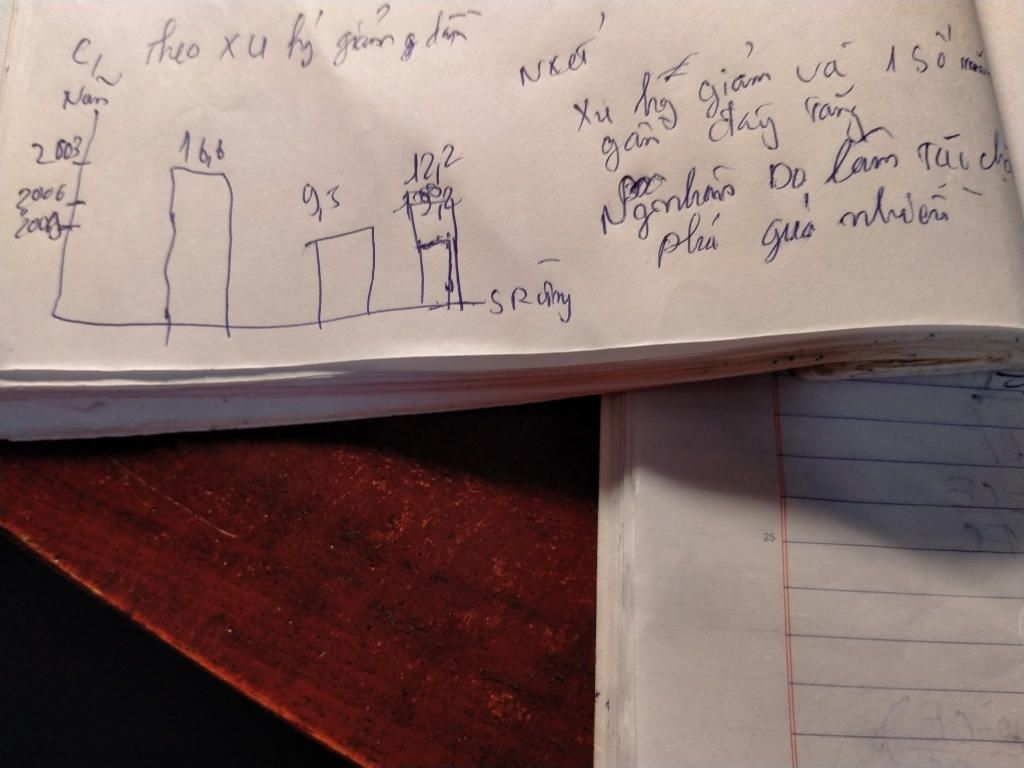 C, Theo xu hg giảm g dần
Năm
2003
2006
2009
16,6
9,3
12,2
S Rừng
Nxét
xu hg giảm và 1 số
gần đây tăng
Ng nhân Do làm
phá quá nhiều
25